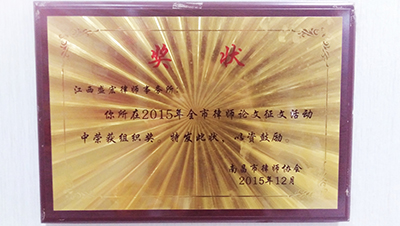 奖状
江西盛宝律师事务所:
你所在2015年全市律师论文征文活动
中荣获组织奖,特发此状,以资鼓励。
南昌市律师协会
2015年12月